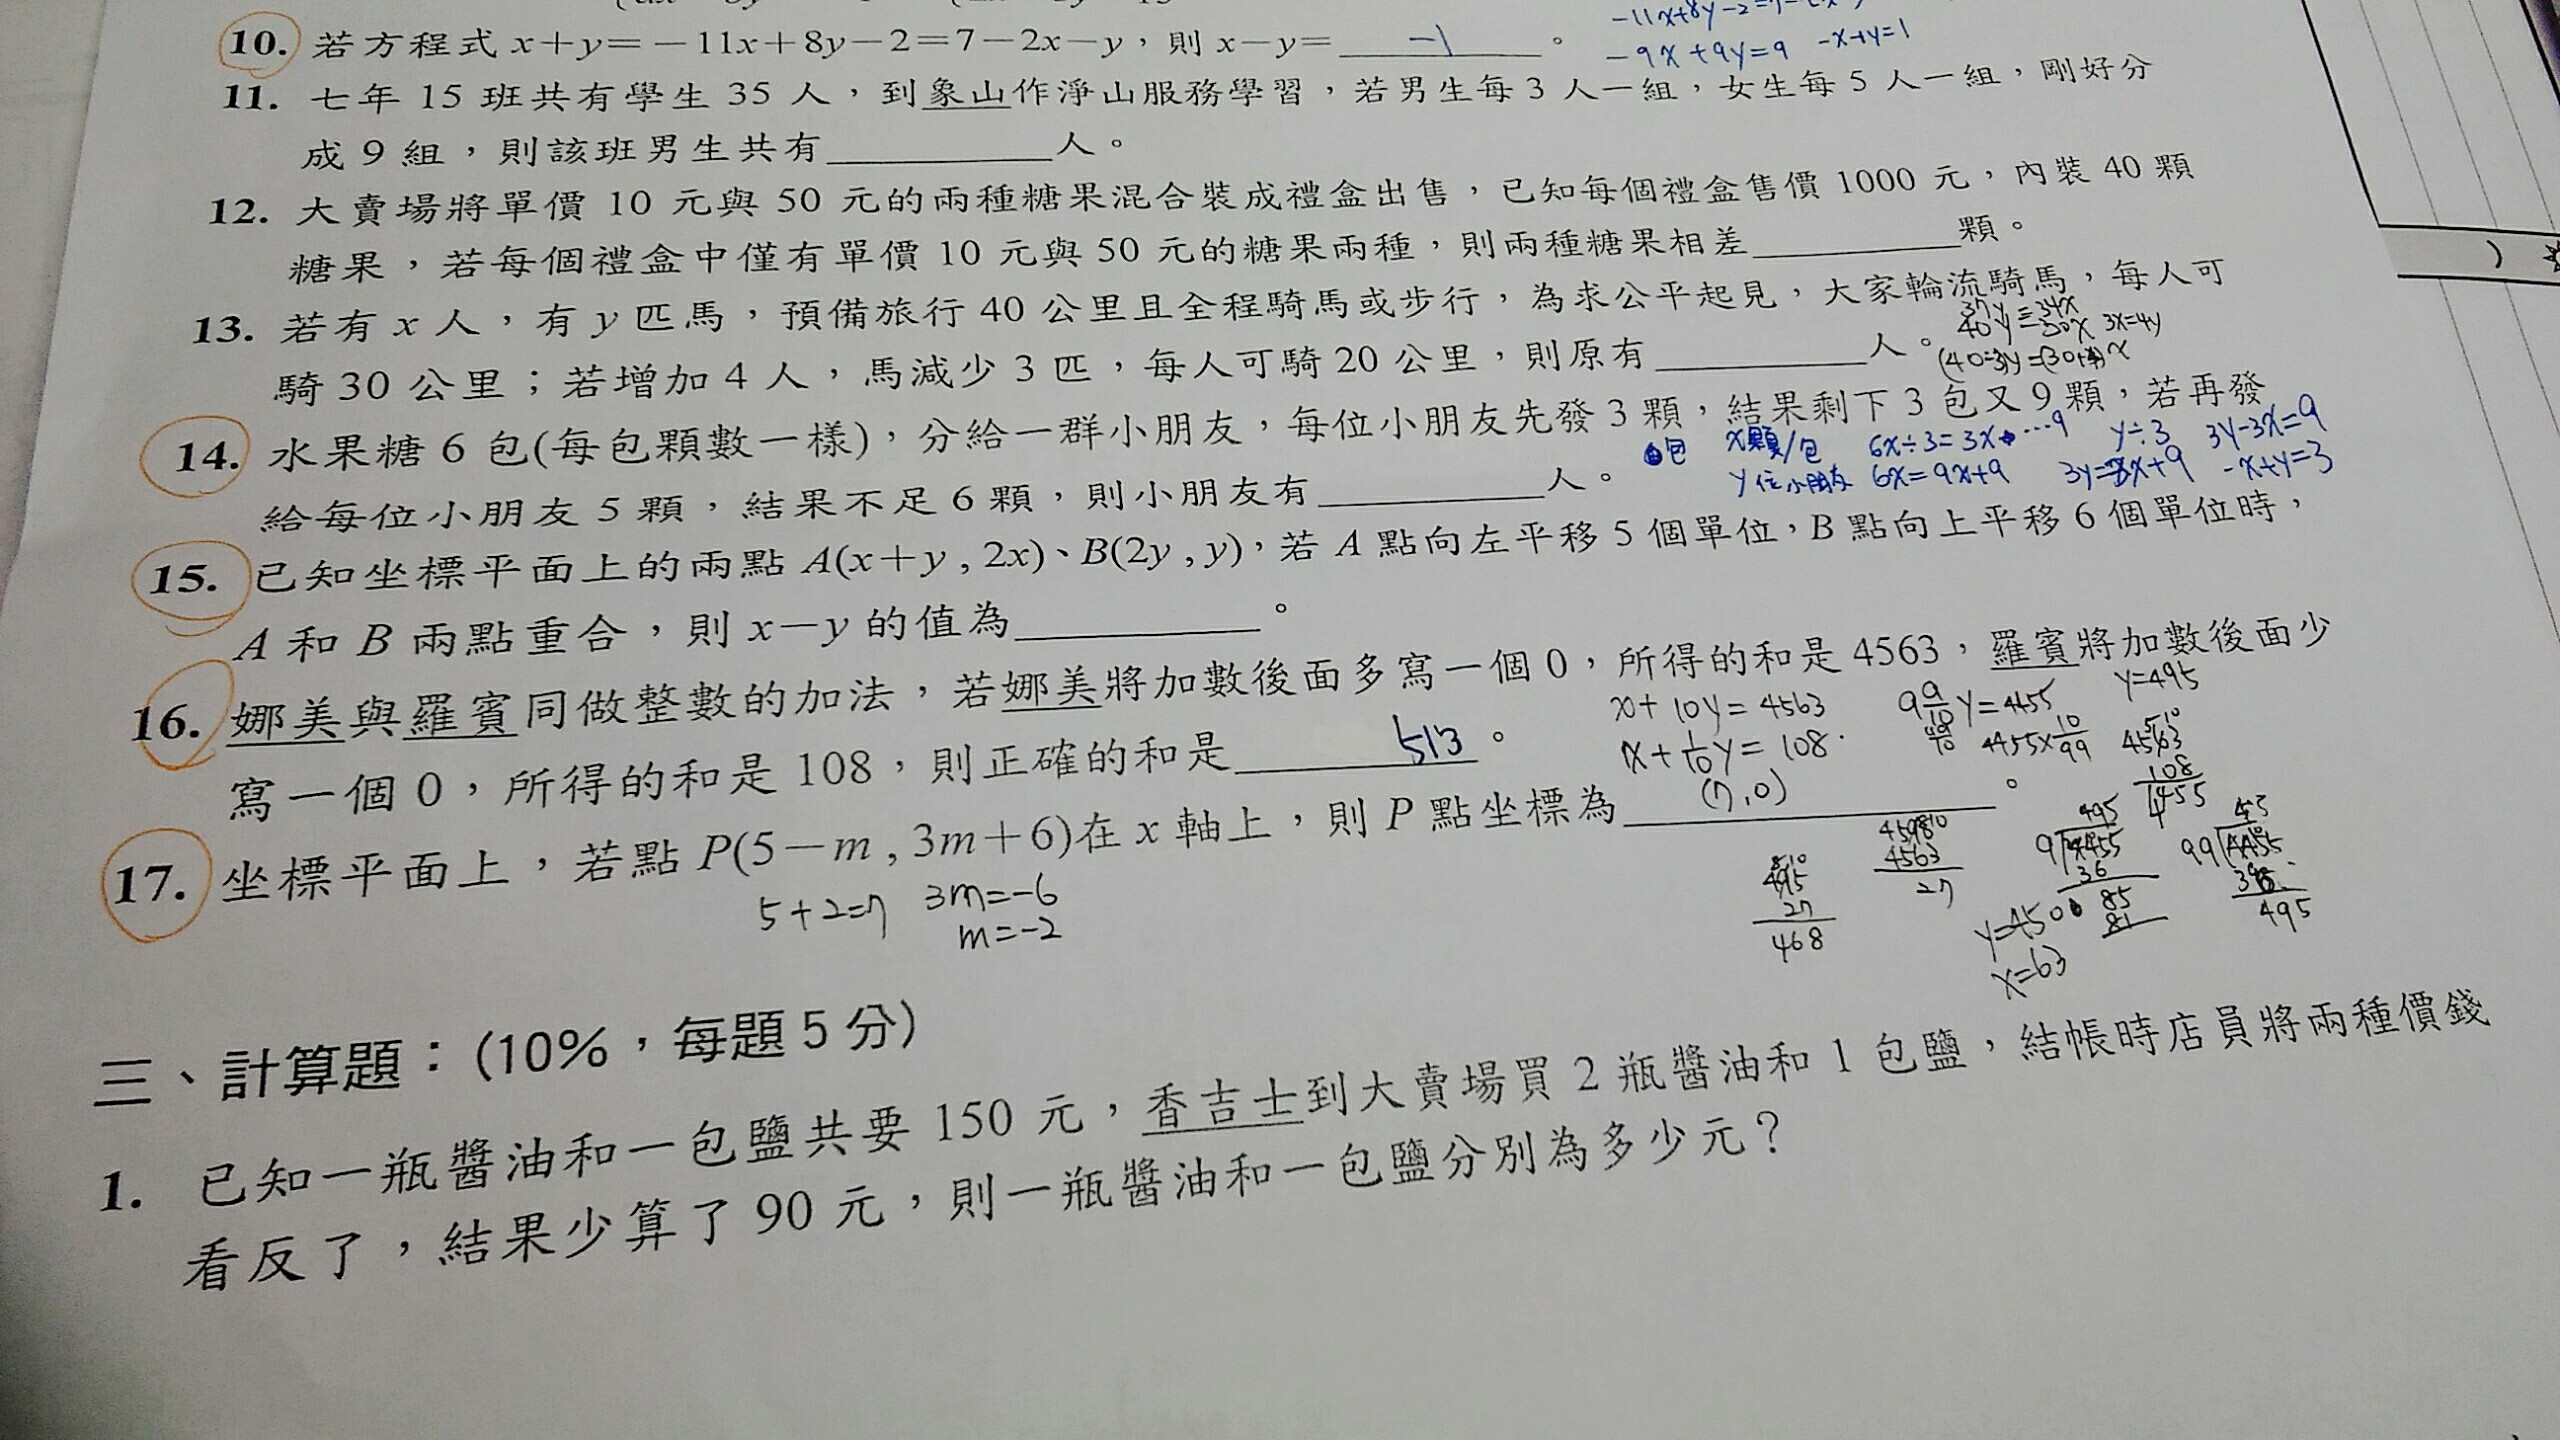 10. 若方程式 x+y=-11x+8y-2=7-2x-y，則 x-y= -1 。
-9x+9y=9 -x+y=1
11. 七年 15 班共有學生 35 人，到象山作淨山服務學習，若男生每 3 人一組，女生每 5 人一組，剛好分
成 9 組，則該班男生共有__________人。
12. 大賣場將單價 10 元與 50 元的兩種糖果混合裝成禮盒出售，已知每個禮盒售價 1000 元，內裝 40 顆
糖果，若每個禮盒中僅有單價 10 元與 50 元的糖果兩種，則兩種糖果相差__________顆。
13. 若有 x 人，有 y 匹馬，預備旅行 40 公里且全程騎馬或步行，為求公平起見，大家輪流騎馬，每人可
37y=34x
40y=30x 3x=4y
騎 30 公里；若增加 4 人，馬減少 3 匹，每人可騎 20 公里，則原有__________人。
14. 水果糖 6 包(每包顆數一樣)，分給一群小朋友，每位小朋友先發 3 顆，結果剩下 3 包又 9 顆，若再發
包 x顆/包 6x÷3=3x…9 y÷3 3y-3x=9
給每位小朋友 5 顆，結果不足 6 顆，則小朋友有__________人。
y位小朋友 6x=9x+9 3y=3x+9 -x+y=3
15. 已知坐標平面上的兩點 A(x+y , 2x)、B(2y , y)，若 A 點向左平移 5 個單位，B 點向上平移 6 個單位時，
A 和 B 兩點重合，則 x-y 的值為__________。
16. 娜美與羅賓同做整數的加法，若娜美將加數後面多寫一個 0，所得的和是 4563，羅賓將加數後面少
x+10y=4563 9 9/10 y=4455 y=495
寫一個 0，所得的和是 108，則正確的和是 513 。
x+1/10y=108 4455×10/99 4563
108
4455
17. 坐標平面上，若點 P(5-m , 3m+6)在 x 軸上，則 P 點坐標為 (7,0) 。
5+2=7 3m=-6
m=-2
4563
27
495
27
468
y=450
x=63
495
三、計算題：(10%，每題 5 分)
1. 已知一瓶醬油和一包鹽共要 150 元，香吉士到大賣場買 2 瓶醬油和 1 包鹽，結帳時店員將兩種價錢
看反了，結果少算了 90 元，則一瓶醬油和一包鹽分別為多少元？